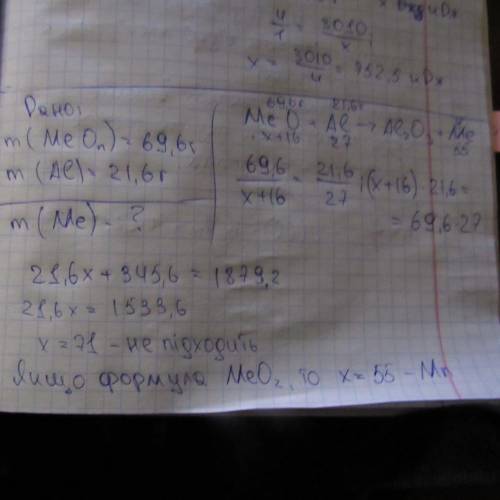 4/1 = 3010/x;
x = 3010/4 = 752,5 кДж
Дано:
m(MeOn) = 69,6г
m(Al) = 21,6г
m(Me) - ?
69,6г 21,6г
MeO + Al → Al2O3 + Me
x+16 27 55
69,6/x+16 = 21,6/27; (x+16)·21,6 =
= 69,6·27
21,6x + 345,6 = 1879,2
21,6x = 1533,6
x = 71 - не підходить
Якщо формула MeO2, то x = 55 - Mn